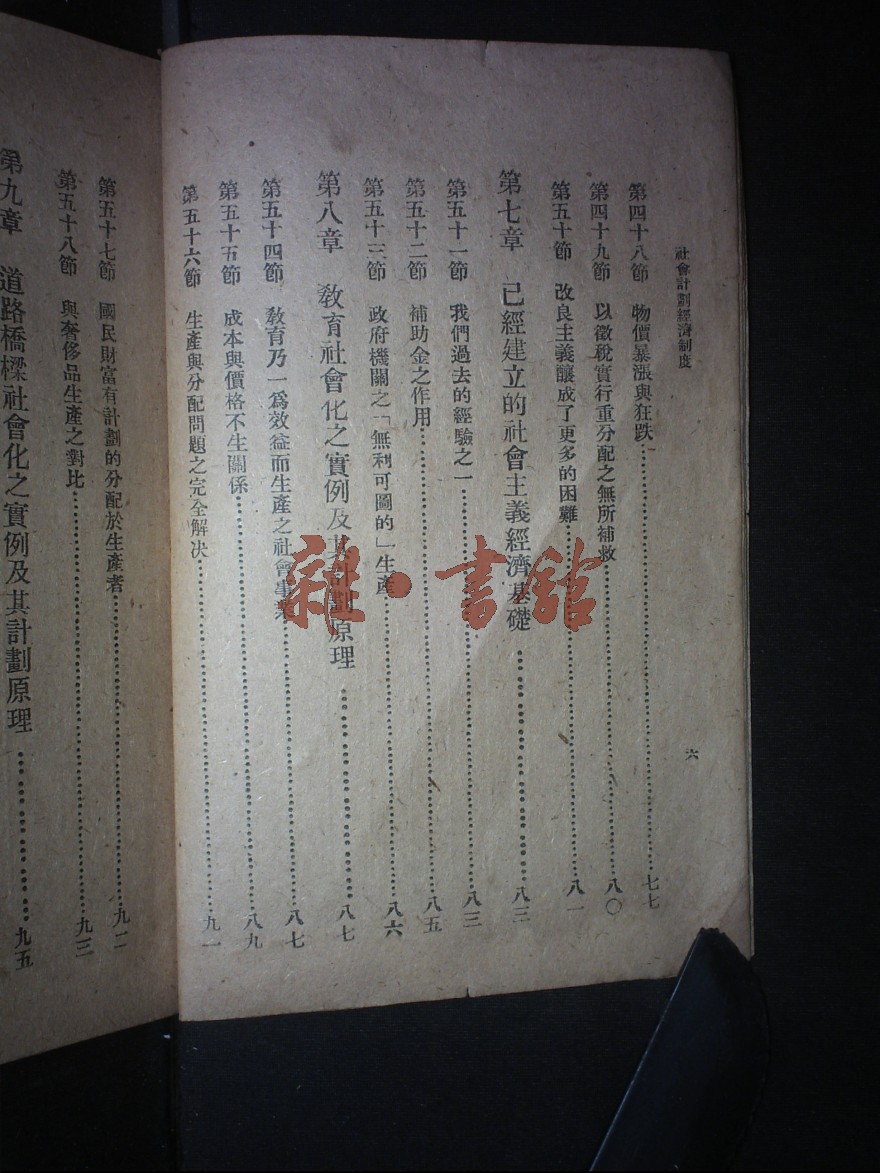 社會計劃經濟制度
六
第四十八節　物價暴漲與狂跌……七七
第四十九節　以徵稅實行重分配之無所補救……八〇
第五十節　改良主義釀成了更多的困難……八一
第七章　已經建立的社會主義經濟基礎……八三
第五十一節　我們過去的經驗之一……八三
第五十二節　補助金之作用……八五
第五十三節　政府機關之「無利可圖的」生產……八六
第八章　教育社會化之實例及其計劃原理……八七
第五十四節　教育乃一爲效益而生產之社會事業……八七
第五十五節　成本與價格不生關係……八九
第五十六節　生產與分配問題之完全解決……九一
第五十七節　國民財富有計劃的分配於生產者……九二
第五十八節　與奢侈品生產之對比……九三
第九章　道路橋樑社會化之實例及其計劃原理……九五
雜·書館